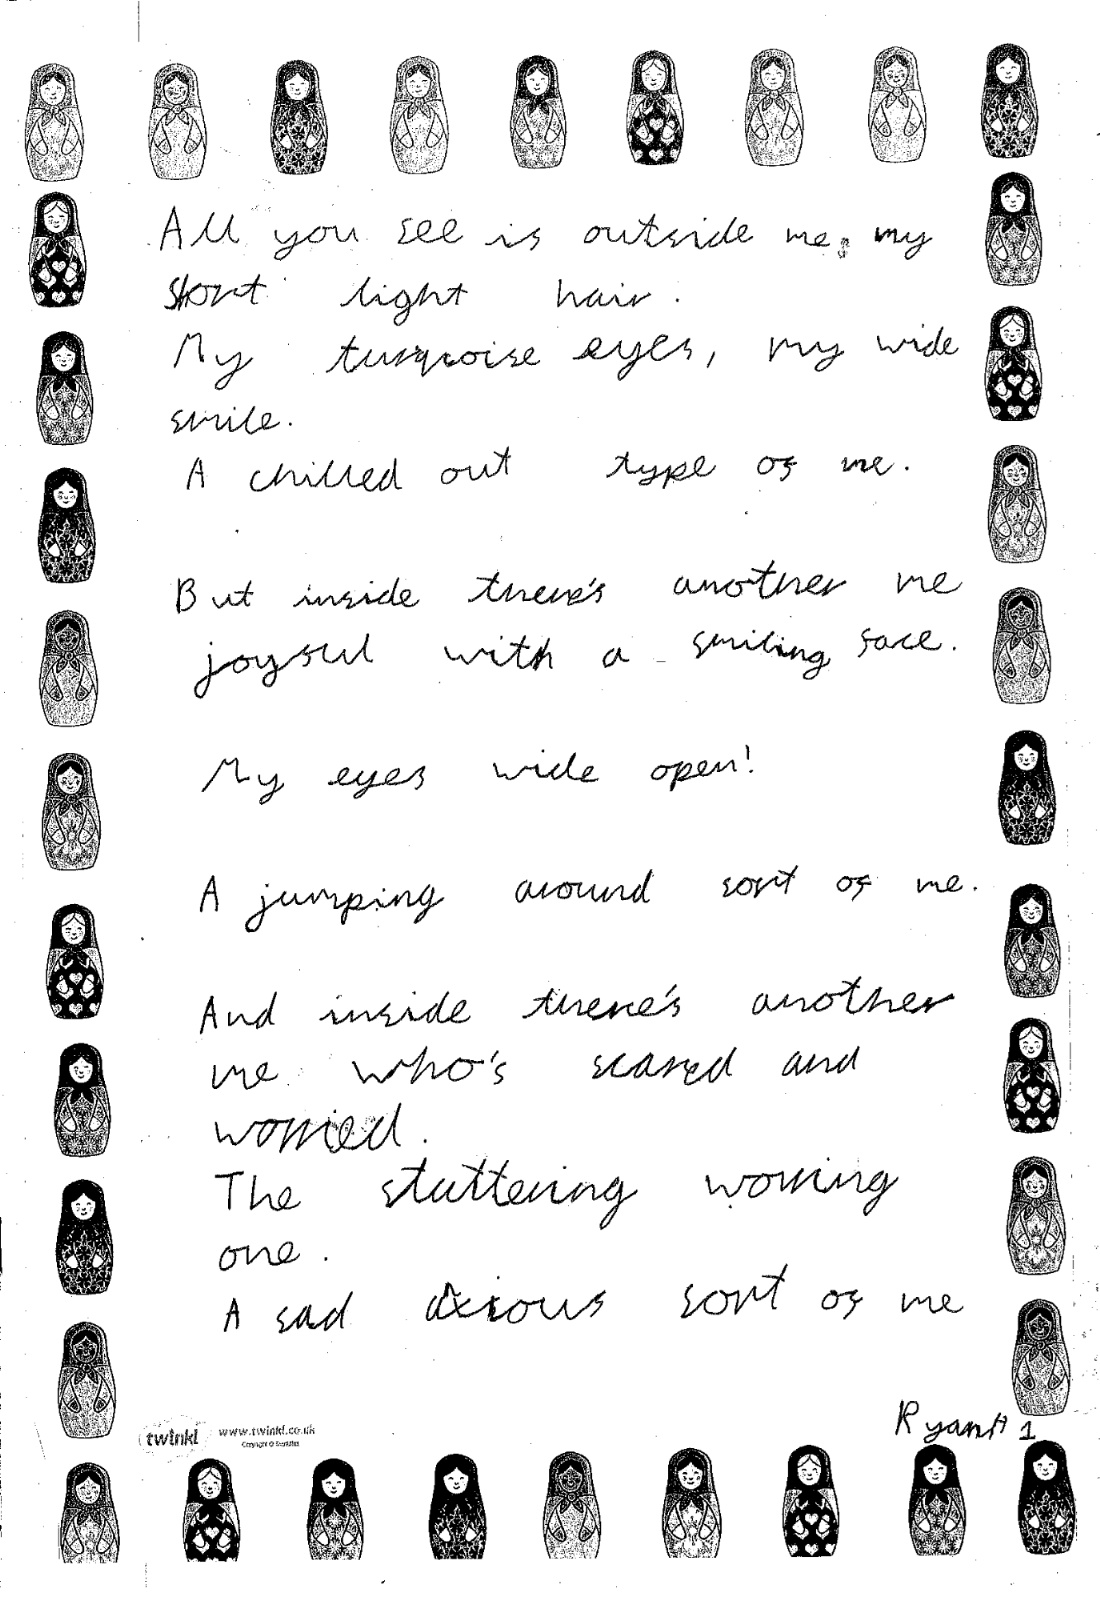 All you see is outside me; my
short light hair.
My turqoise eyes, my wide
smile.
A chilled out type of me.
But inside there's another me
joyful with a smiling face.
My eyes wide open!
A jumping around sort of me.
And inside there's another
me who's scared and
worried.
The stuttering worring
one.
A sad axious sort of me
RyanH 1
twinkl www.twinkl.co.uk